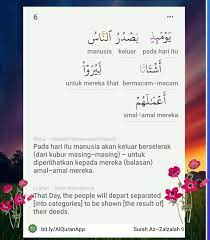 6
يَوْمَئِذٍ يَصْدُرُ النَّاسُ
manusia keluar pada hari itu
أَشْتَاتًا لِّيُرَوْا
untuk mereka lihat bermacam-macam
أَعْمَالَهُمْ
amal-amal mereka
Pada hari itu manusia akan keluar berselerak
(dari kubur masing-masing) – untuk
diperlihatkan kepada mereka (balasan)
amal-amal mereka.
That Day, the people will depart separated
[into categories] to be shown [the result of]
their deeds.
bit.ly/AlQuranApp
Surah Az-Zalzalah 9